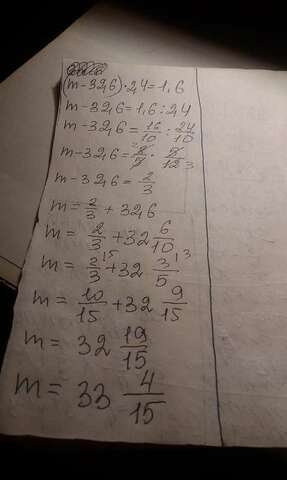 (m-32,6)·2,4=1,6
m-32,6=1,6:2,4
m-32,6=16/10:24/10
m-32,6=8/5·5/12
m-32,6=2/3
m=2/3+32,6
m=2/3+32 6/10
m=2/3+32 3/5
m=10/15+32 9/15
m=32 19/15
m=33 4/15